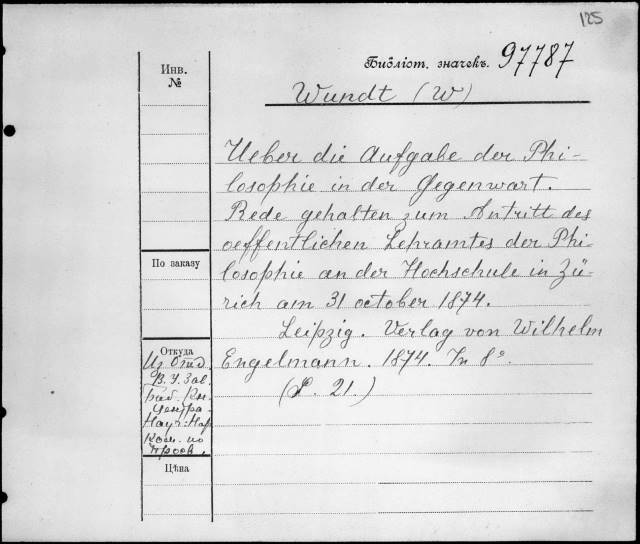 125
Библіот. значекъ. 97787
Wundt (W)
Ueber die Aufgabe der Phi-
losophie in der Gegenwart.
Rede gehalten zum Antritt des
oeffentlichen Lehramtes der Phi-
losophie an der Hochschule in Zü-
rich am 31 october 1874.
Leipzig. Verlag von Wilhelm
Engelmann. 1874. In 8°.
(P. 21.)
Инв.
№
По заказу
Откуда
Из Отд.
В. У. Зав.
Биб. Кн.
Центра-
Науч. Нар.
Ком. по
Просв.
Цѣна